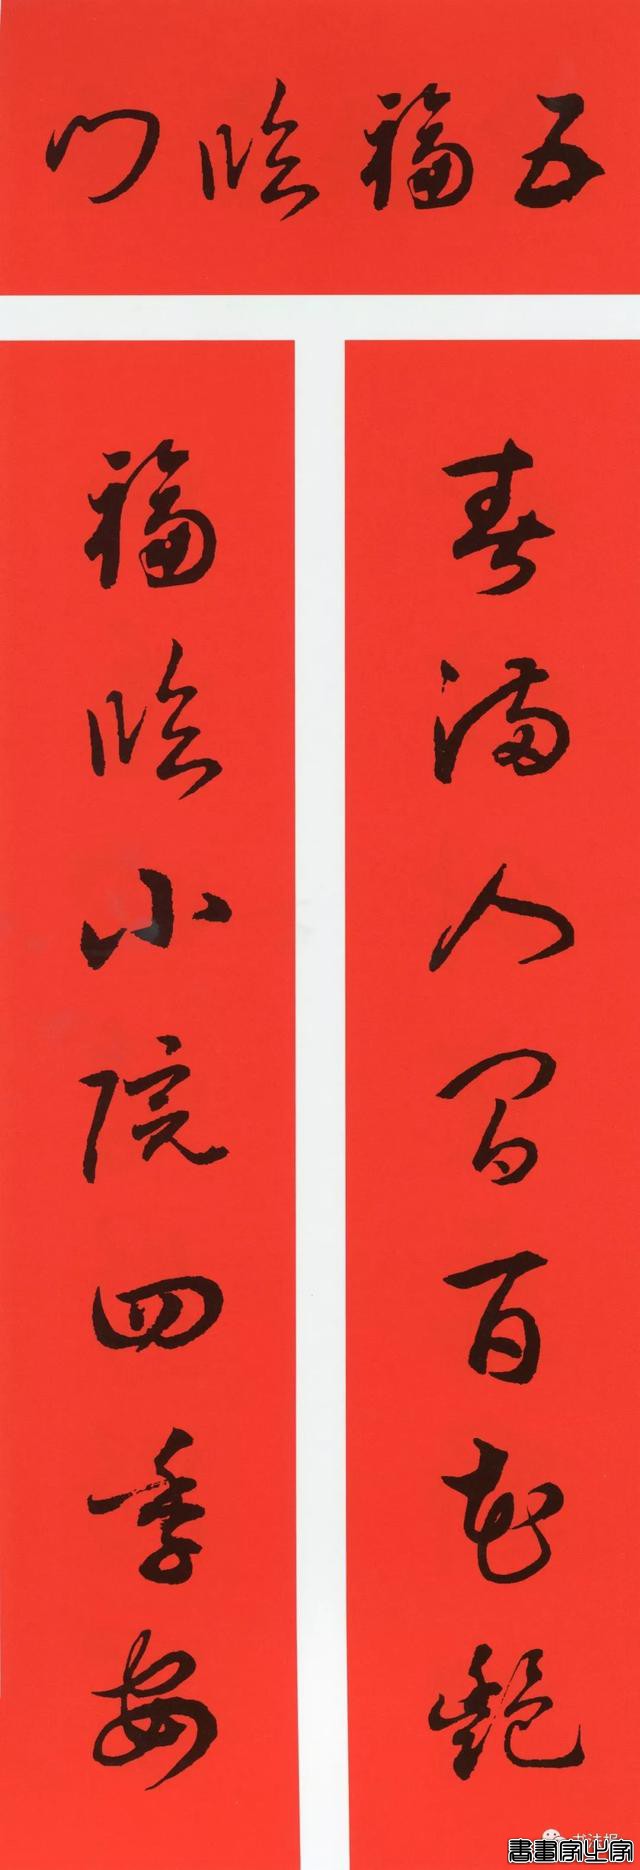 五福临门
春满人间百花艳
福临小院四季安
書畫家之家